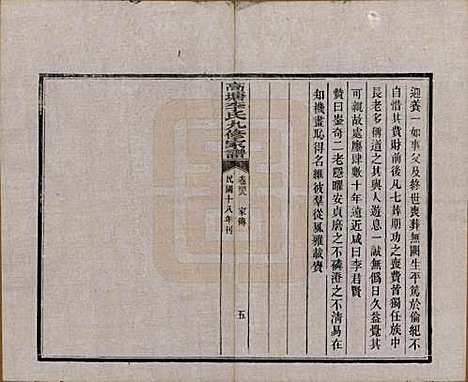 迎養一如事父及終世喪葬無闕生平篤於倫紀不
自惜其費財前後凡七葬期功之喪費皆獨任族中
長老多稱道之其與人遊息一誠無僞日久益覺其
可親故處鏖肆數十年遠近咸曰李君賢
贊曰崟奇二老隱曜安貞磨之不磷澄之不淸易在
知機晝恥得名維彼羣從風雅載賡
高塘李氏九修家譜
卷 家傳
五
民國十八年刊